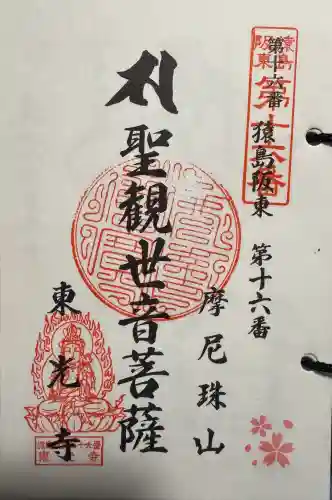 猿島
阪東
第十六番
第十六番
猿島阪東 第十六番
摩尼珠山
札 聖觀世音菩薩
東光寺